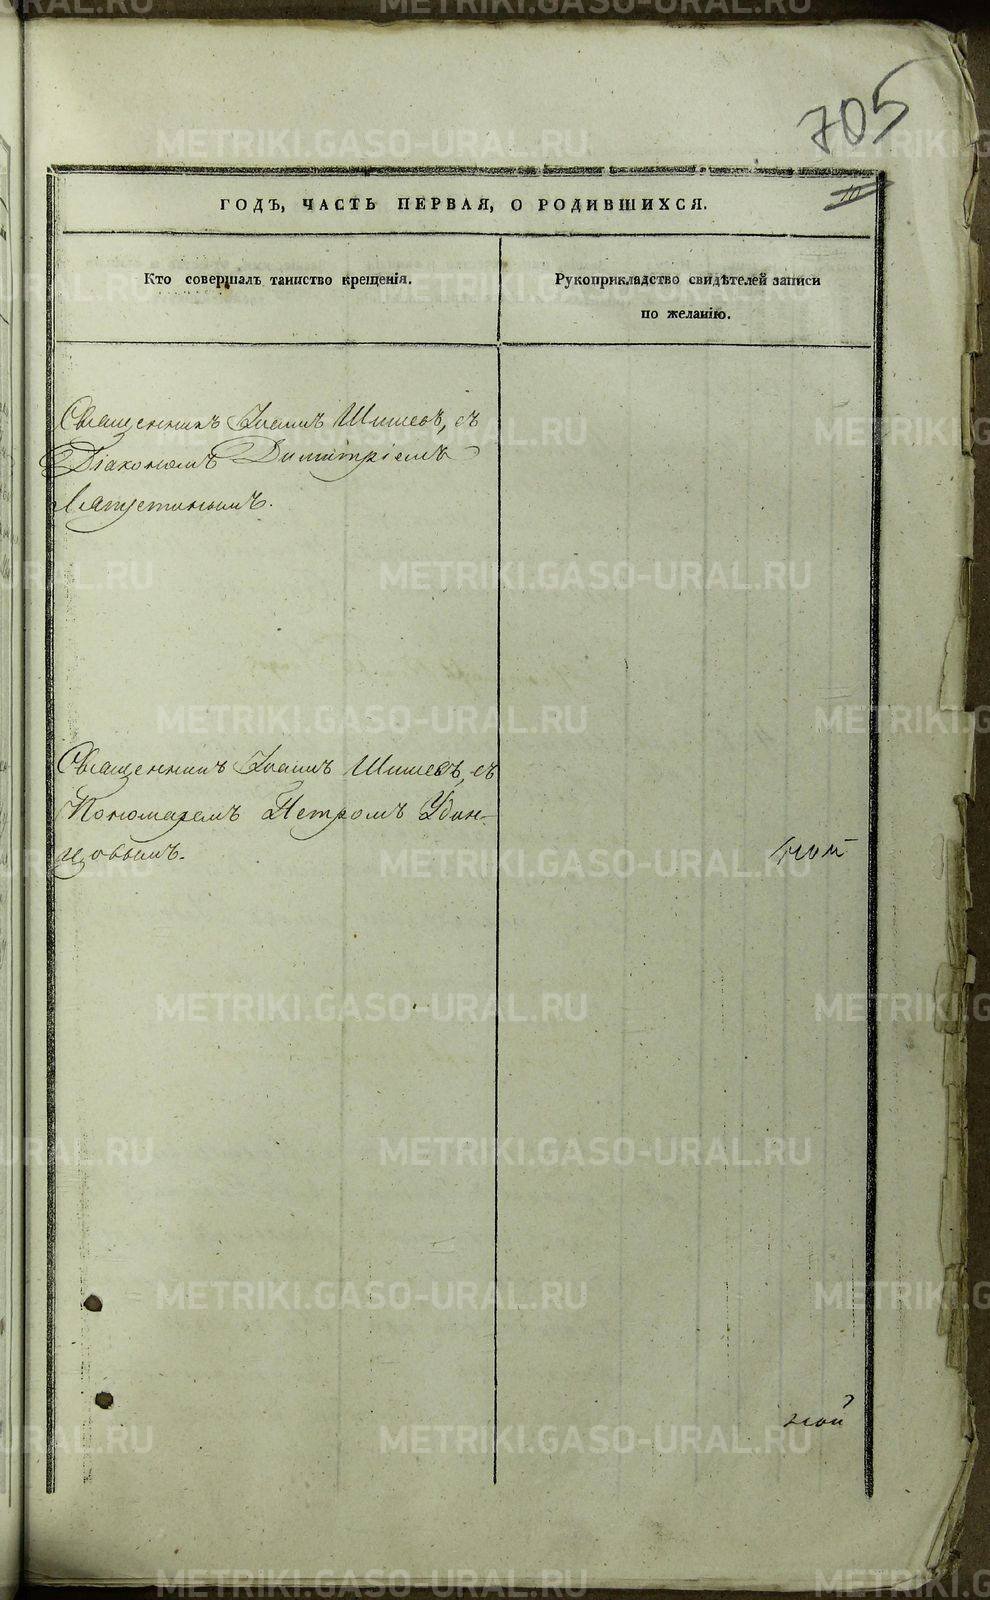 705
10
ГОДЪ, ЧАСТЬ ПЕРВАЯ, О РОДИВШИХСЯ.
Кто совершалъ таинство крещенія.
Рукоприкладство свидѣтелей записи
по желанію.
Священникъ Іоаннъ Шишевъ, съ
Діакономъ Димитріемъ
Капустинымъ.
Священникъ Іоаннъ Шишевъ, съ
Пономаремъ Петромъ Удин-
цовымъ.
ной
METRIKI.GASO-URAL.RU